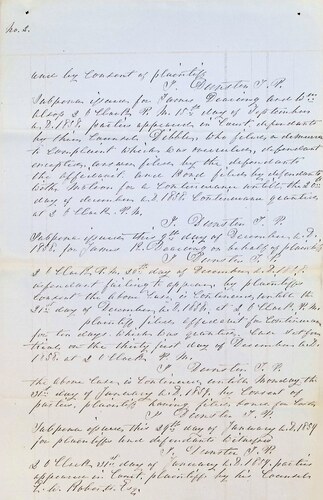 No. 2.
and by Consent of plaintiff
J. Dunston J. P.
Subpoena issued for James Dearing and Wm
2 O Clock P. M. 15th day of September
A.D. 1858. parties appeared in Court, defendants
by their Counsel Dibble, who files a demurrer
to Complaint which was overruled, defendant
excepted, answer filed by the defendants
the affidavit and Bond filed by defendants
with Motion for a Continuance until the 20th
day of december A.D. 1858. Continuance granted
at 2 O Clock P.M.
J. Dunston J. P.
Subpoena issued this 9th day of December A.D.
1858. for James R. Dearing on behalf of plaintiff
J. Dunston J. P.
2 O Clock P.M. 20th day of December A.D. 1858.
defendant failing to appear, by plaintiffs
Consent the above Case is Continued until the
21st day of December, A.D. 1858, at 2 O Clock P.M.
plaintiff files affidavit for Continuance
for ten days. which was granted. Case set for
trial on the thirty first day of December A.D.
1858. at 2 O Clock P. M.
J. Dunston J. P.
the above Case, is Continued until Monday the
31st day of January A.D. 1859. by Consent of
parties, plaintiff
J. Dunston J. P.
Subpoena issued this 29th day of January A.D. 1859
for plaintiffs and defendants Witnesses
J. Dunston J. P.
2 O Clock 31st day of January A.D. 1859. parties
appeared in Court, plaintiff by his Counsel
Roberts Esq.